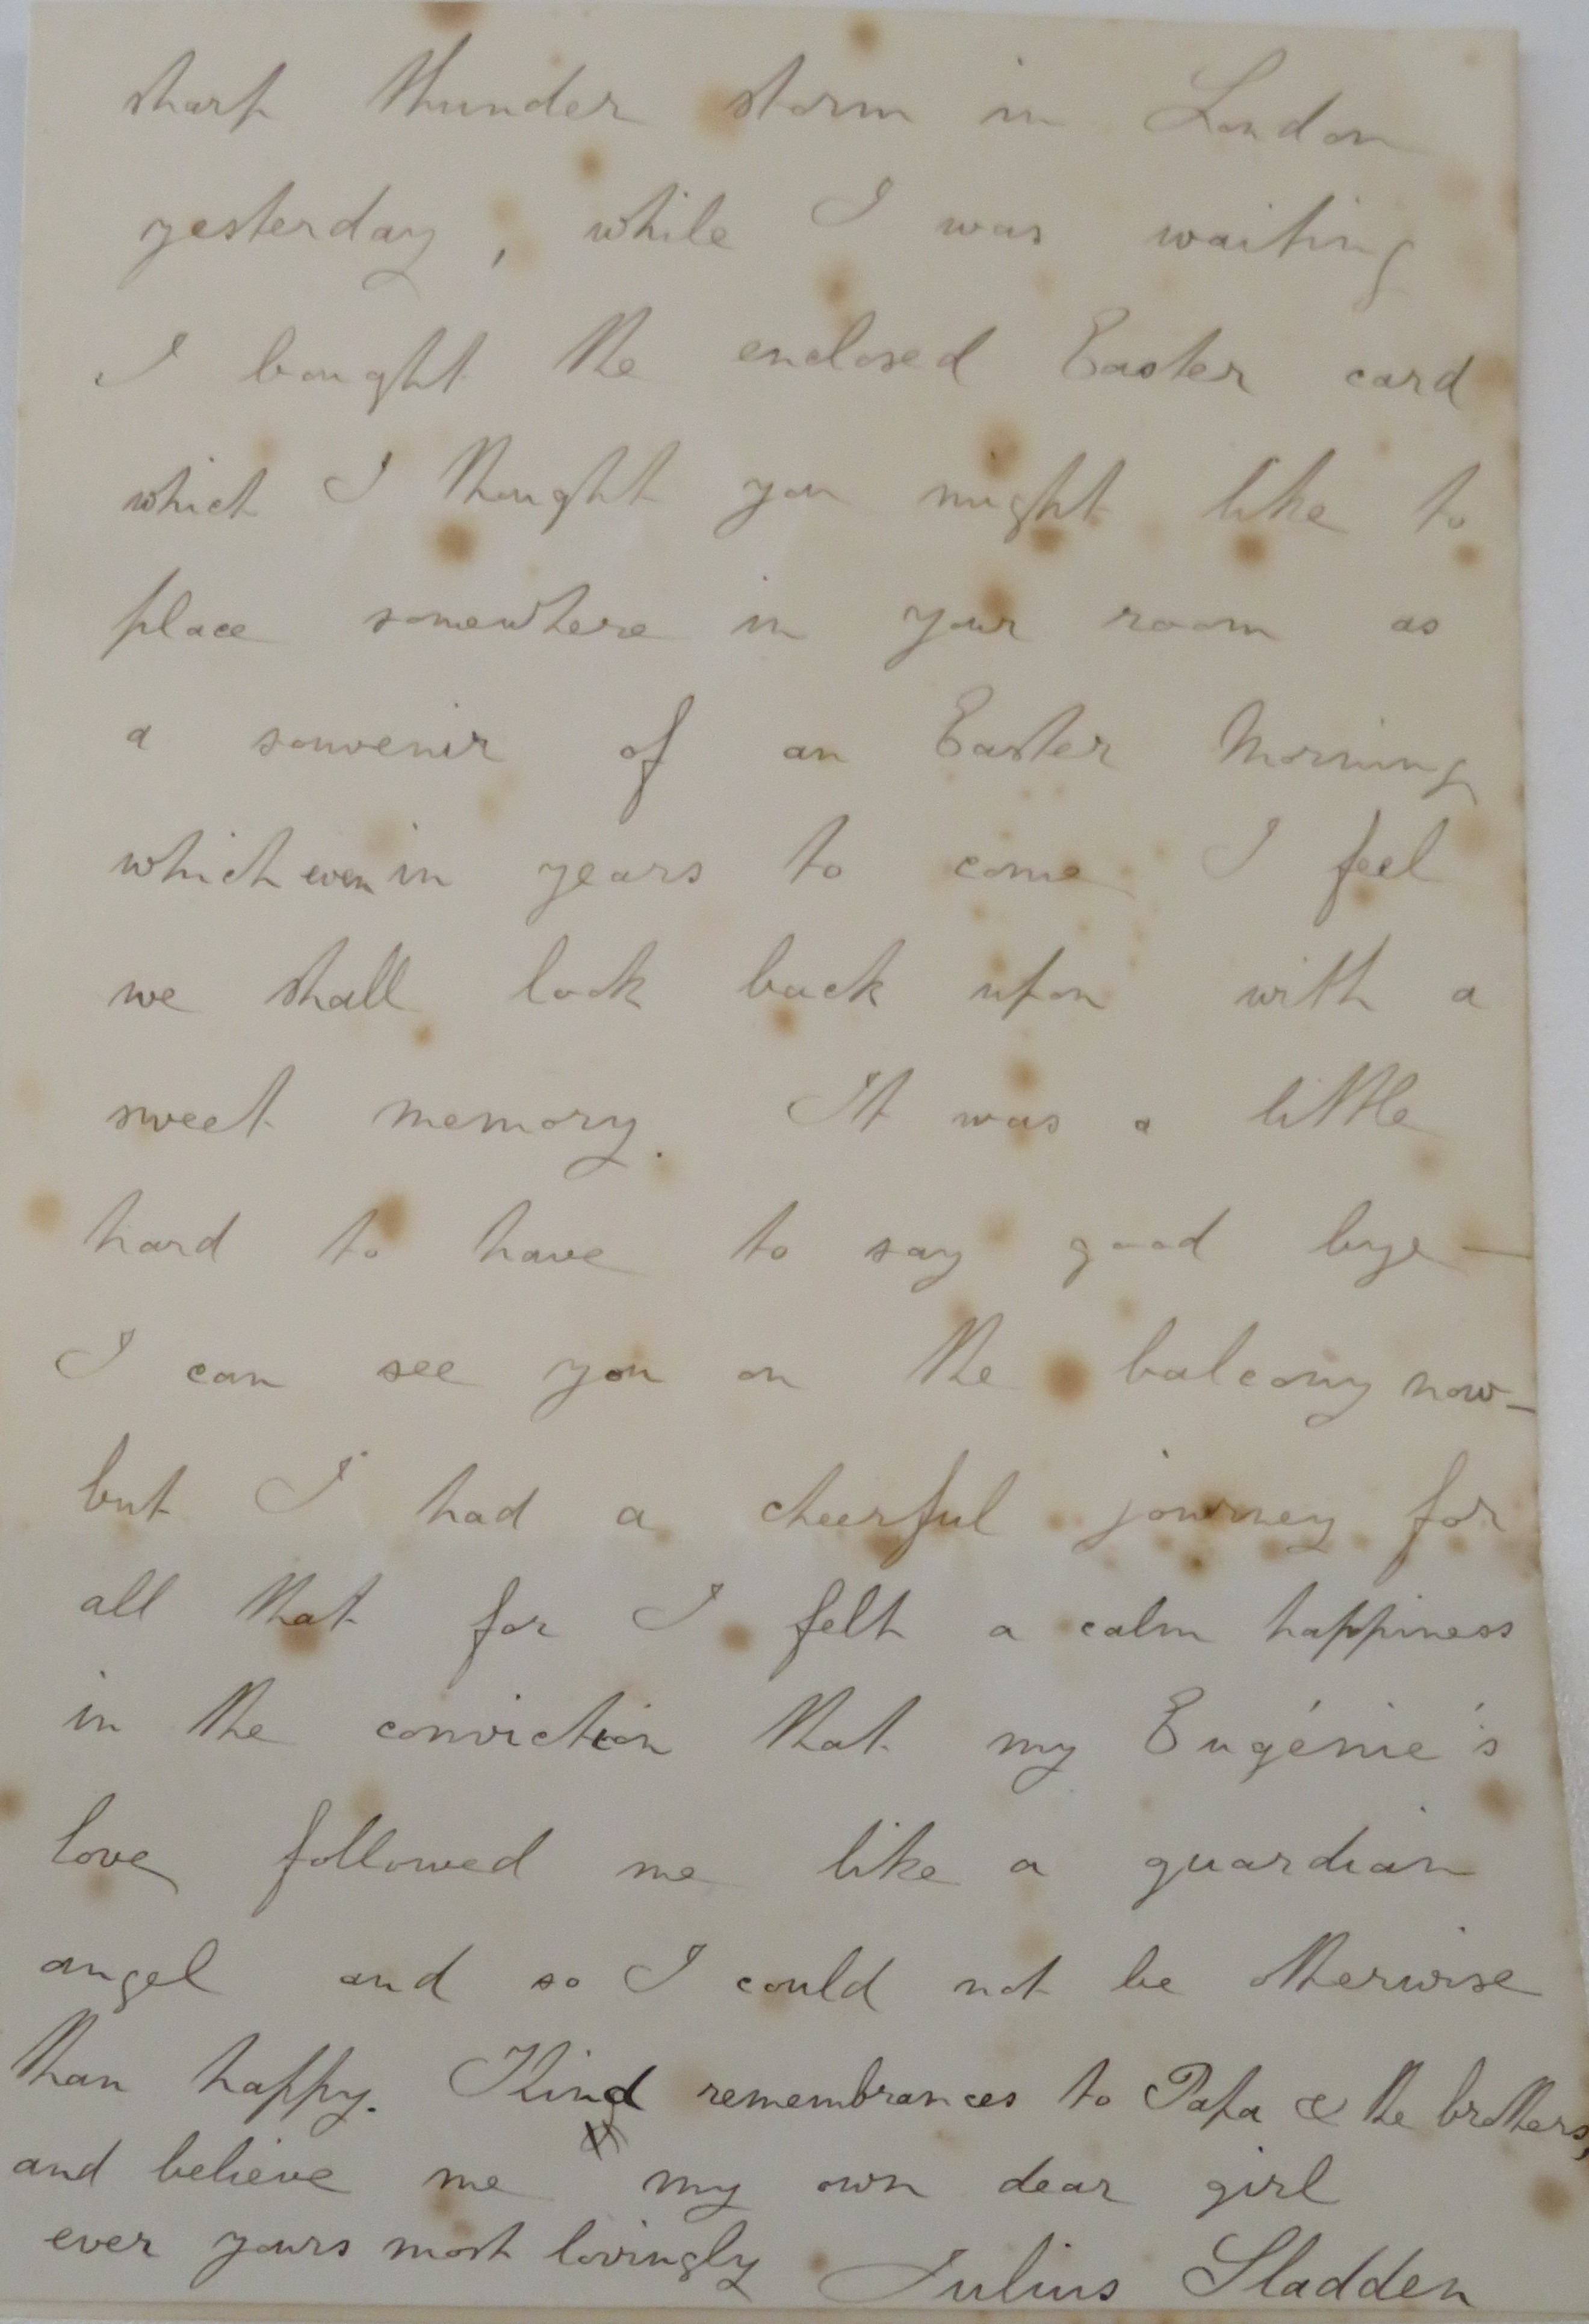 sharp thunder storm in London
yesterday, while I was waiting
I bought the enclosed Easter card
which I thought you might like to
place somewhere in your room as
a souvenir of an Easter Morning
which even in years to come I feel
we shall look back upon with a
sweet memory. It was a little
hard to have to say good bye —
I can see you on the balcony now —
but I had a cheerful journey for
all that for I felt a calm happiness
in the conviction that my Eugénie's
love followed me like a guardian
angel and so I could not be otherwise
than happy. Kind remembrances to Papa & the brothers,
and believe me my own dear girl
ever yours most lovingly Julius Sladden